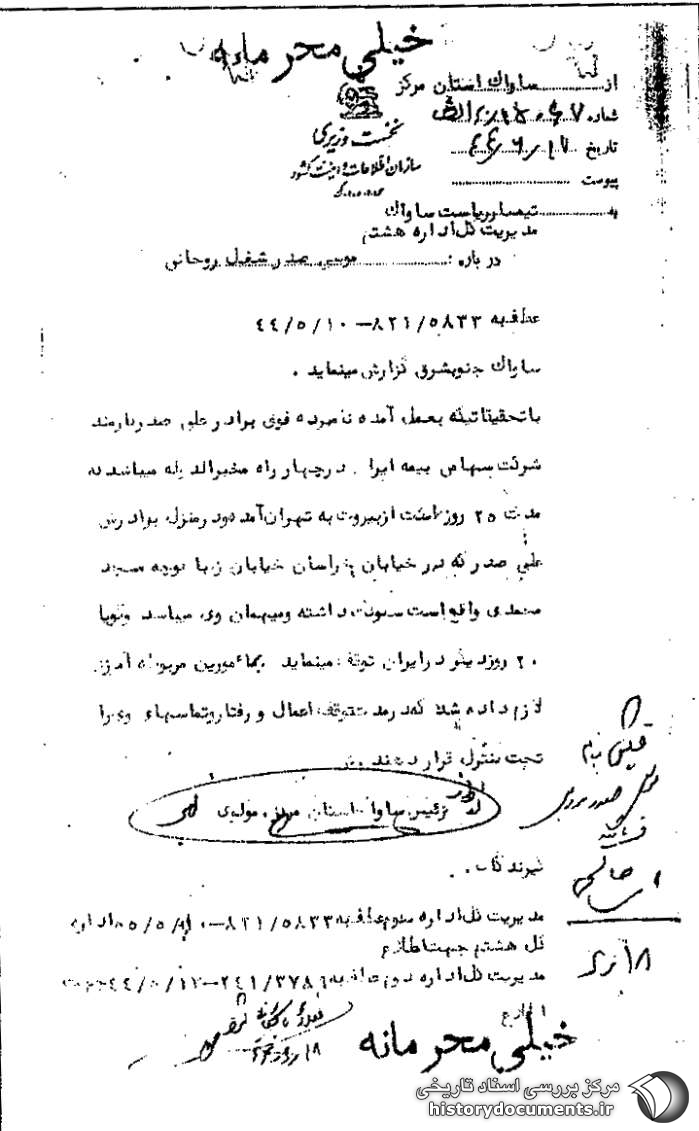 خیلی محرمانه
از ساواک استان مرکز
شماره
نخست وزیری
تاریخ ۴۴/۶/۱۷
سازمان اطلاعات و امنیت کشور
پیوست
به تیمسار ریاست ساواک
مدیریت کل اداره هشتم
در باره : موسی صدر شغل روحانی
عطف به ۸۲۱/۵۸۳۳ – ۴۴/۵/۱۰
ساواک جنوبشرق گزارش مینماید .
با تحقیقاتیکه بعمل آمده نامبرده فوق برادر علی صدر کارمند
شرکت سهامی بیمه ایران در چهار راه مخبرالدوله میباشد که
مدت ۲۵ روز است از بیروت به تهران آمده و در منزل برادرش
علی صدر که در خیابان خراسان خیابان زیبا کوچه مسجد
محمدی واقع است سکونت داشته و میهمان وی میباشد و گویا
۲۰ روز دیگر در ایران توقف مینماید بمأمورین مربوطه آموزش
لازم داده شد که در مدت توقف اعمال و رفتار و تماسهای وی را
تحت کنترل قرار دهند
رئیس ساواک استان مرکز . مولوی
گیرندگان .
مدیریت کل اداره سوم عطف به ۸۲۱/۵۸۳۳ اداره
کل هشتم جهت اطلاع
مدیریت کل اداره دوم عطف به ۲۴۱/۳۷۸۶ – ۴۴/۵/۱۲ جهت
۱۸
خیلی محرمانه
مرکز بررسی اسناد تاریخی
historydocuments.ir